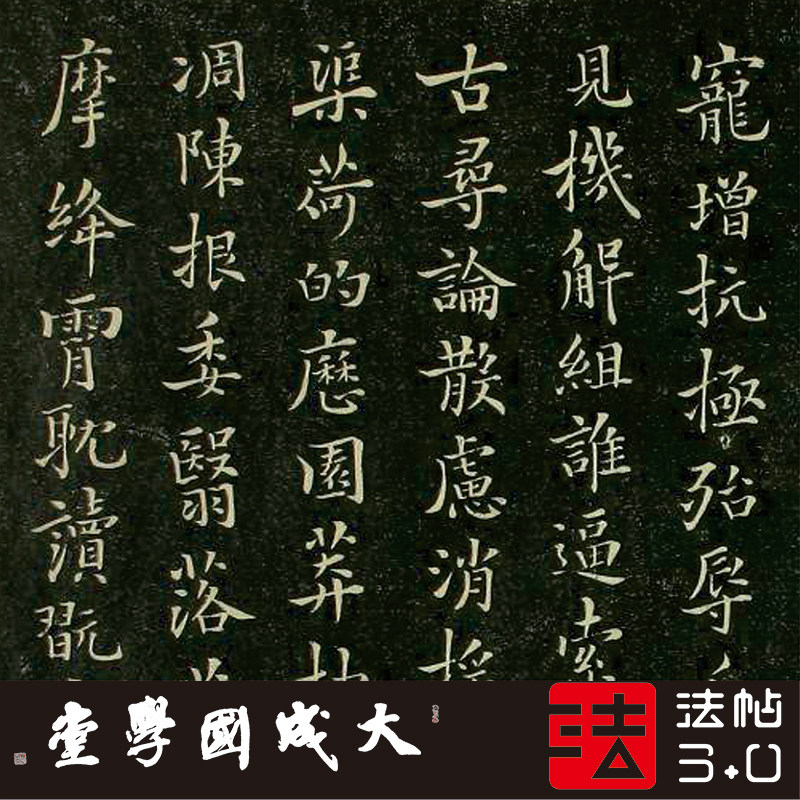 寵增抗極殆辱
見機解組誰逼索
古尋論散慮消
渠荷的歷園莽
凋陳根委翳落
摩絳霄耽讀翫
大成國學堂
法
法帖
3.0